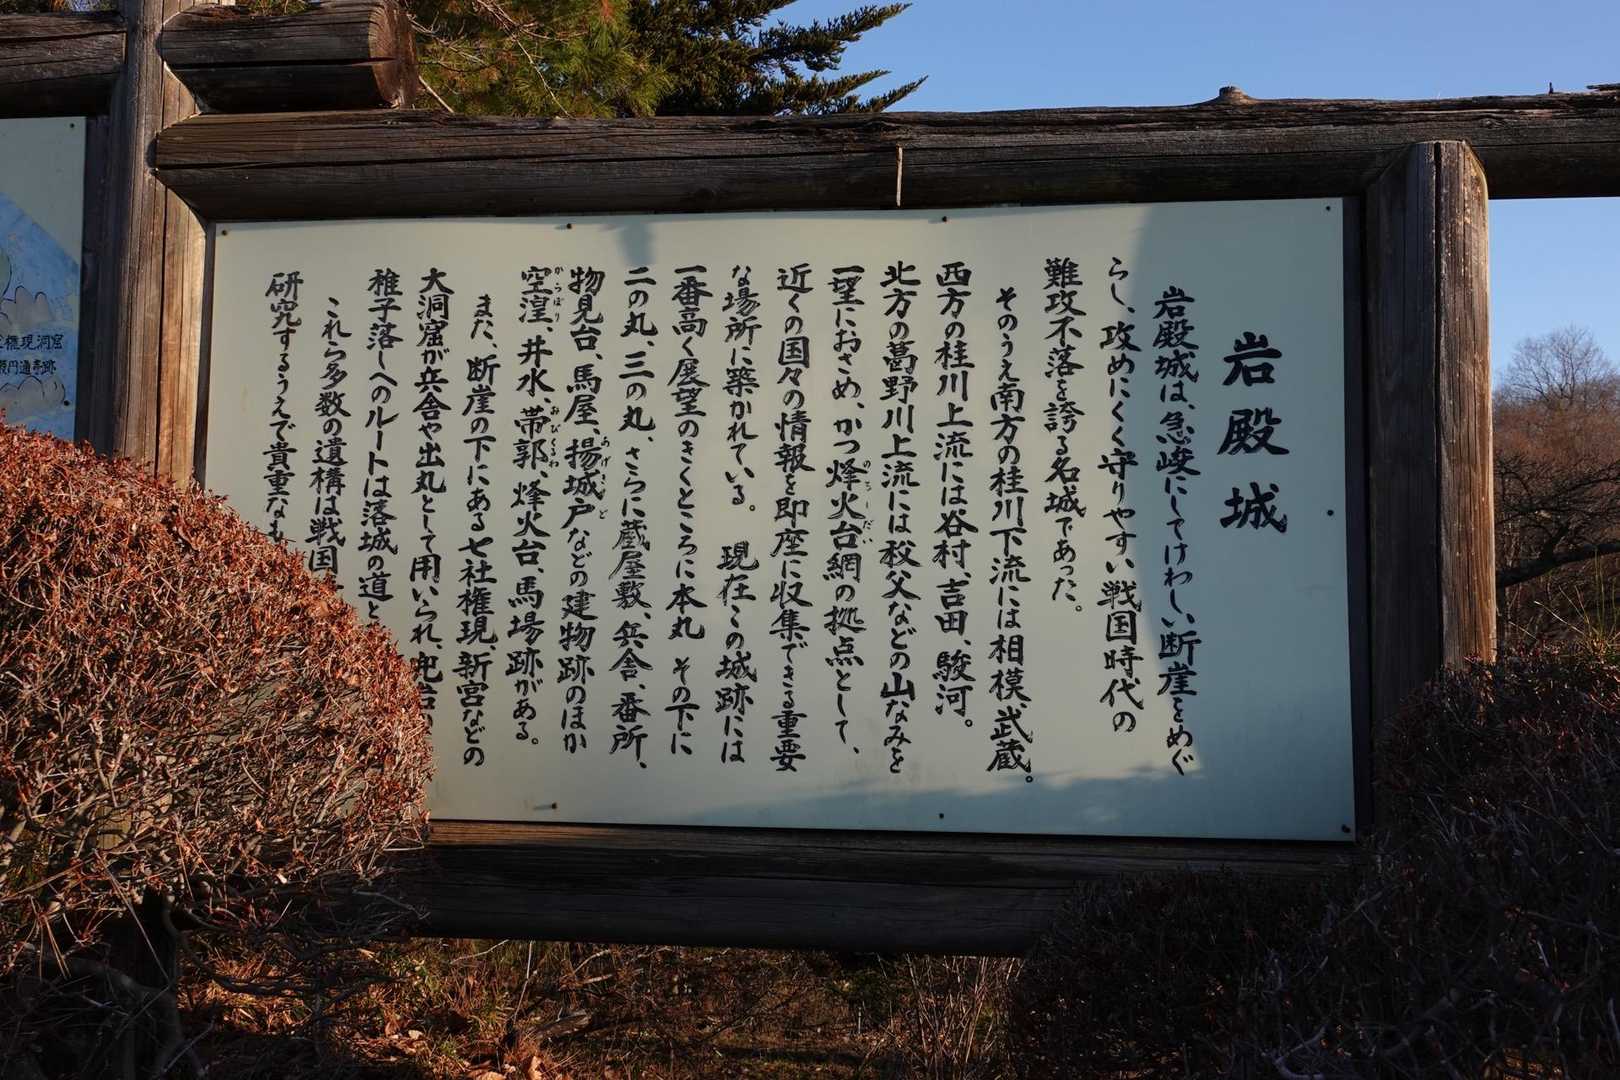 岩殿城
岩殿城は、急峻にしてけわしい断崖をめぐ
らし、攻めにくく守りやすい戦国時代の
難攻不落を誇る名城であった。
そのうえ南方の桂川下流には相模、武蔵。
西方の桂川上流には谷村、吉田、駿河。
北方の葛野川上流には秩父などの山なみを
一望におさめ、かつ烽火台網の拠点として、
のろしだい
近くの国々の情報を即座に収集できる重要
な場所に築かれている。 現在この城跡には
一番高く展望のきくところに本丸 その下に
二の丸、三の丸、さらに蔵屋敷、兵舎、番所、
物見台、馬屋、揚城戸などの建物跡のほか
あげきど
空湟、井水、帯郭、烽火台、馬場跡がある。
からぼり
おびくるわ
また、断崖の下にある七社権現、新宮などの
大洞窟が兵舎や出丸として用いられ、兜岩
稚子落しへのルートは落城の道と
これら多数の遺構は戦国
研究するうえで貴重なも
権現洞窟
円通寺跡